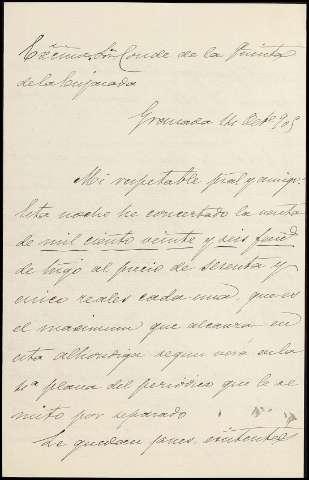 Excmo. Sr. Conde de la Quinta
de la Enjarada
Granada 14 Octe 905
Mi respetable pral y amigo:
Esta noche he concertado la venta
de mil ciento veinte y seis fans
de trigo al precio de sesenta y
cinco reales cada una, que es
el maximum que alcanza en
esta alhondiga segun verá en la
1ª plana del periódico que le re
mito por separado " " "
Le quedan pues, existentes